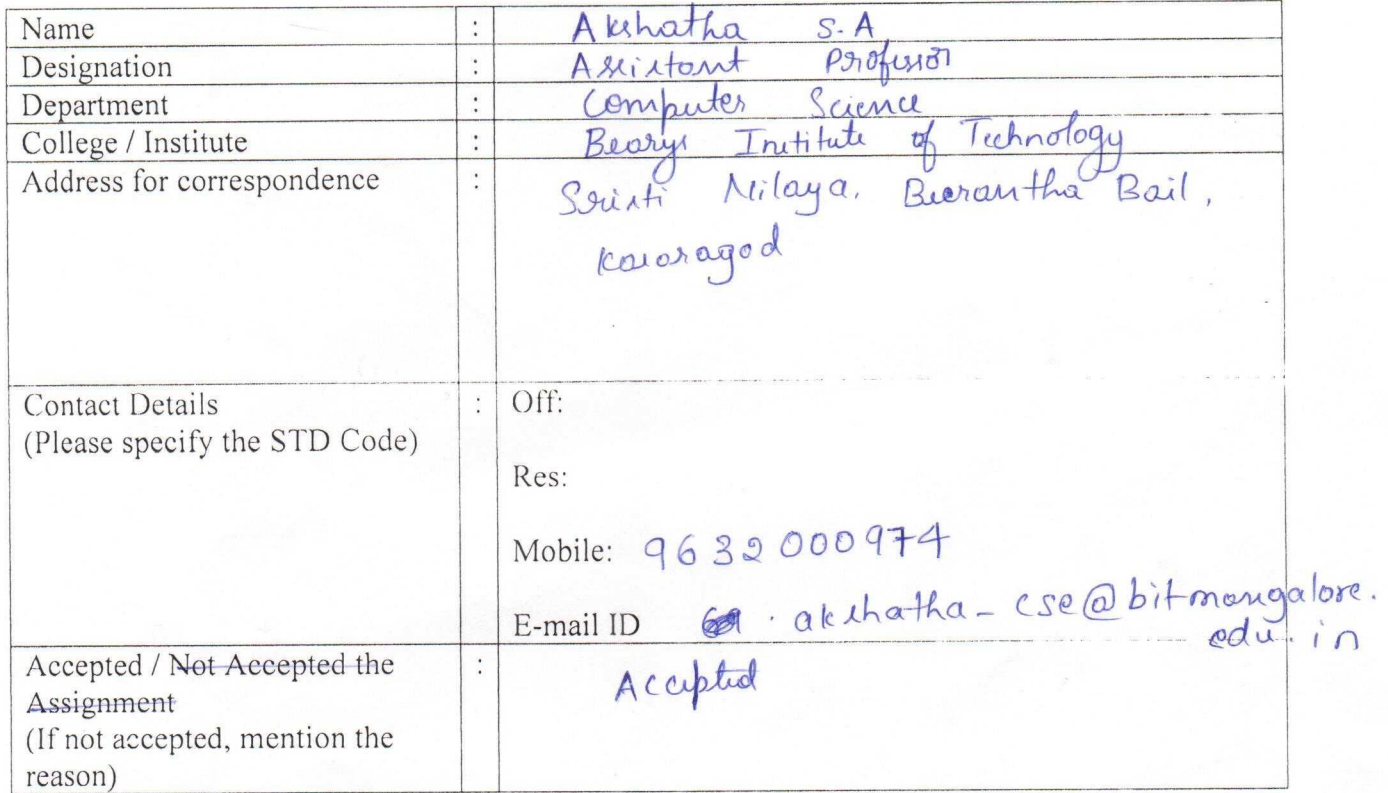 Name : Akshatha S.A
Designation : Assistant Professor
Department : Computer Science
College / Institute : Bearys Institute of Technology
Address for correspondence : Nilaya, Bail,
Kasaragod
Contact Details : Off:
(Please specify the STD Code)
Res:
Mobile: 9632000974
E-mail ID akshatha_cse@bitmangalore.
edu.in
Accepted / Not Accepted the : Accepted
Assignment
(If not accepted, mention the
reason)